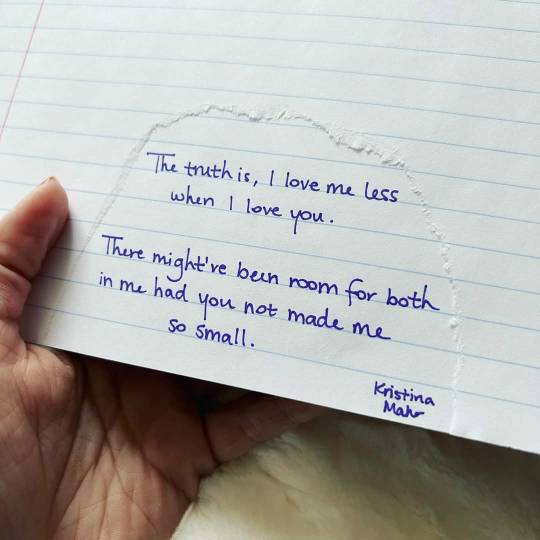 The truth is, I love me less
when I love you.
There might've been room for both
in me had you not made me
so small.
Kristina
Mahr